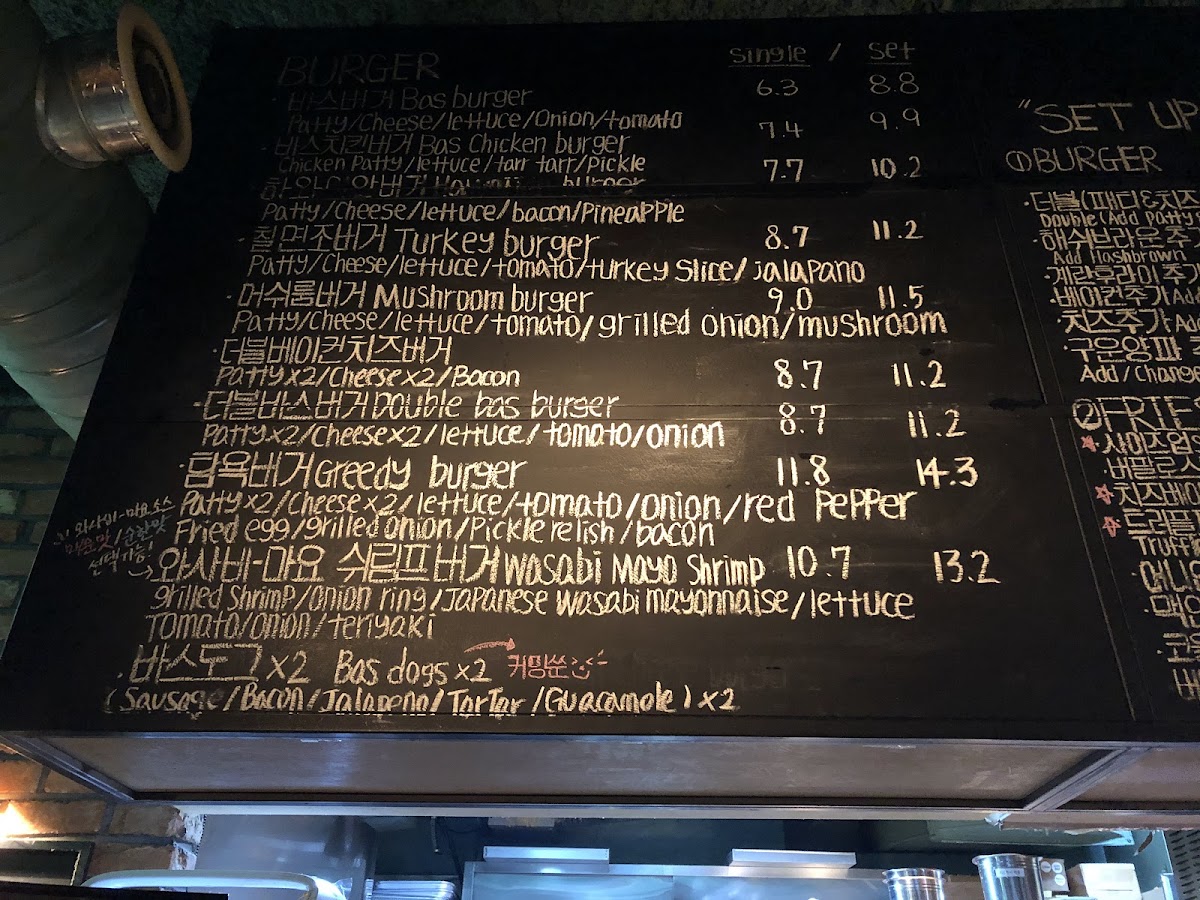 BURGER single / set
바스버거 Bas burger 6.3 8.8
Patty/Cheese/lettuce/Onion/tomato
바스치킨버거 Bas Chicken burger 7.4 9.9
Chicken Patty/lettuce/tarr tarr/Pickle
하와이안버거 Hawaiian burger 7.7 10.2
Patty/Cheese/lettuce/bacon/PineapPle
·칠면조버거 Turkey burger 8.7 11.2
Patty/Cheese/lettuce/tomato/turkey Slice/jalapano
·머쉬룸버거 Mushroom burger 9.0 11.5
Patty/Cheese/lettuce/tomato/grilled onion/mushroom
·더블베이컨치즈버거
Patty x2/Cheese x2/Bacon 8.7 11.2
-더블바스버거 Double bas burger 8.7 11.2
Patty x2/Cheese x2/lettuce/tomato/onion
·탐욕버거 Greedy burger 11.8 14.3
Patty x2/Cheese x2/lettuce/tomato/onion/red PePPer
Fried egg/grilled onion/Pickle relish/bacon
와사비-마요 소스
매운맛/순한맛
선택가능!
와사비-마요 쉬림프버거 Wasabi Mayo Shrimp 10.7 13.2
grilled Shrimp/onion ring/Japanese wasabi mayonnaise/lettuce
Tomato/onion/teriyaki
·바스도그 x2 Bas dogs x2 커밍쑨
(Sausage/Bacon/Jalapeno/TarTar/Guacamole) x2
"SET UP
①BURGER
·더블(패티&치즈
Double(Add patty
·해쉬브라운추
Add Hashbrown
·계란후라이추가
·베이컨추가 Ad
·치즈추가 Ad
·구운양파
Add/Change
②FRIE
사이즈업
·버팔로
치즈베이
트러플
Truffle
·어니언